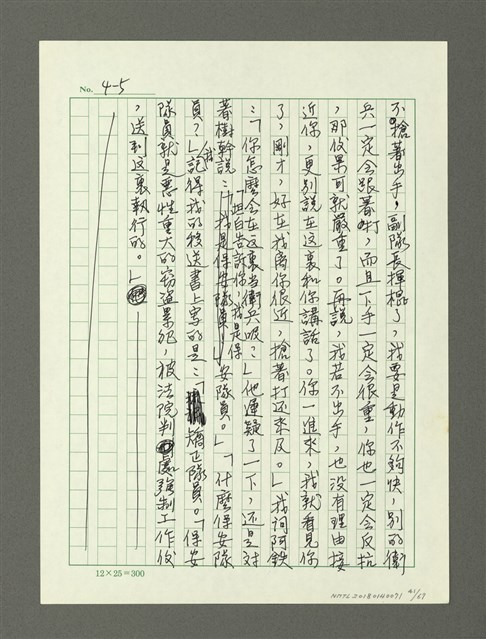 No. 4-5
不搶著出手，副隊長揮棍了，我要是動作不夠快，別的衛
兵一定会跟著打，而且下手一定会很重，你也一定会反抗
，那後果可就嚴重了。再說，我若不出手，也没有理由接
近你，更別說在这裏和你講話了。你一進來，我就看見你
了，剛才，好在我离你很近，搶著打还來及。」我问阿鉄
：「你怎麼会在这裏当衛兵呢？」他遲疑了一下，还是対
著樹幹說：「坦白告訴你，我是保安隊員。」「什麼保安隊
員？」「我記得我的移送書上寫的是：「矯正隊員。「保安
隊員就是惡性重大的窃盜累犯，被法院判處強制工作後
，送到这裏執行的。」
12×25=300
NMTL20180140071 41/67